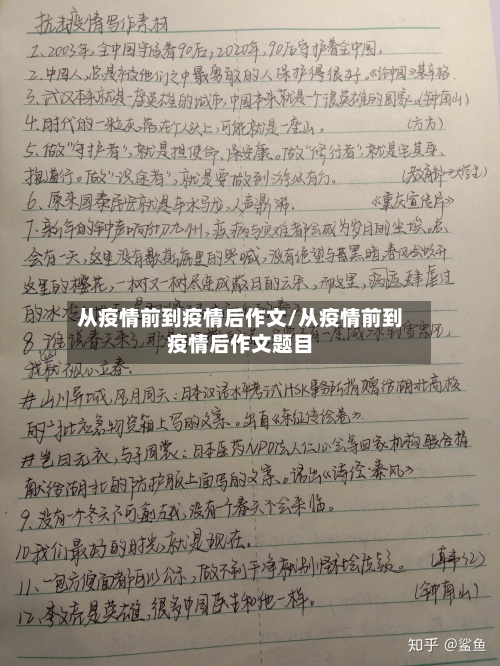 抗击疫情写作素材
1、2003年,全中国守护着90后,2020年,90后守护着全中国。
2、中国人,总是被他们之中最勇敢的人保护得很好。《论中国》基辛格
3、武汉本来就是一座英雄的城市,中国本来就是一个很英雄的国家。(钟南山)
4、时代的一粒灰,落在个人头上,可能就是一座山。(方方)
5、做"守护者",就是担使命、保安康。做"修行者",就是宅其身、
独道行。做"设
6、原来国泰民安就是车水马龙,人声鼎沸。《重庆宣传片》
7、新年的钟声响彻九州,疫病与灾难都会成为岁月的尘埃。总
会有一天,这里没有歇斯底里的哭喊,没有绝望与黑暗,春风会吹开
这里的樱花,一树又一树尽连成蔽日的云朵,而这里,病医肆虐过
的冰冷
从疫情前到疫情后作文/从疫情前到
疫情后作文题目
8、谁说春天来了,那
我就从心立春。
#山川异域,风月同天:日本汉语水平考试HSK事务所捐赠给湖北高校
的物资箱上写的文案。出自《东征传绘卷》
#岂曰无衣,与子同裳:日本医药NPO法人仁心会等四家机构联合捐
献给湖北的防护服上面写的文案。语出《诗经·秦风》
9、没有一个冬天不可逾越,没有一个春天不会来临。
10、我们最好的时光,就是现在。
11、一包方便面都可以公示,做不到干净就别怪社会质疑。
12、李文亮是英雄,很多中国医生和他一样。(钟南山)
知乎 @鲨鱼